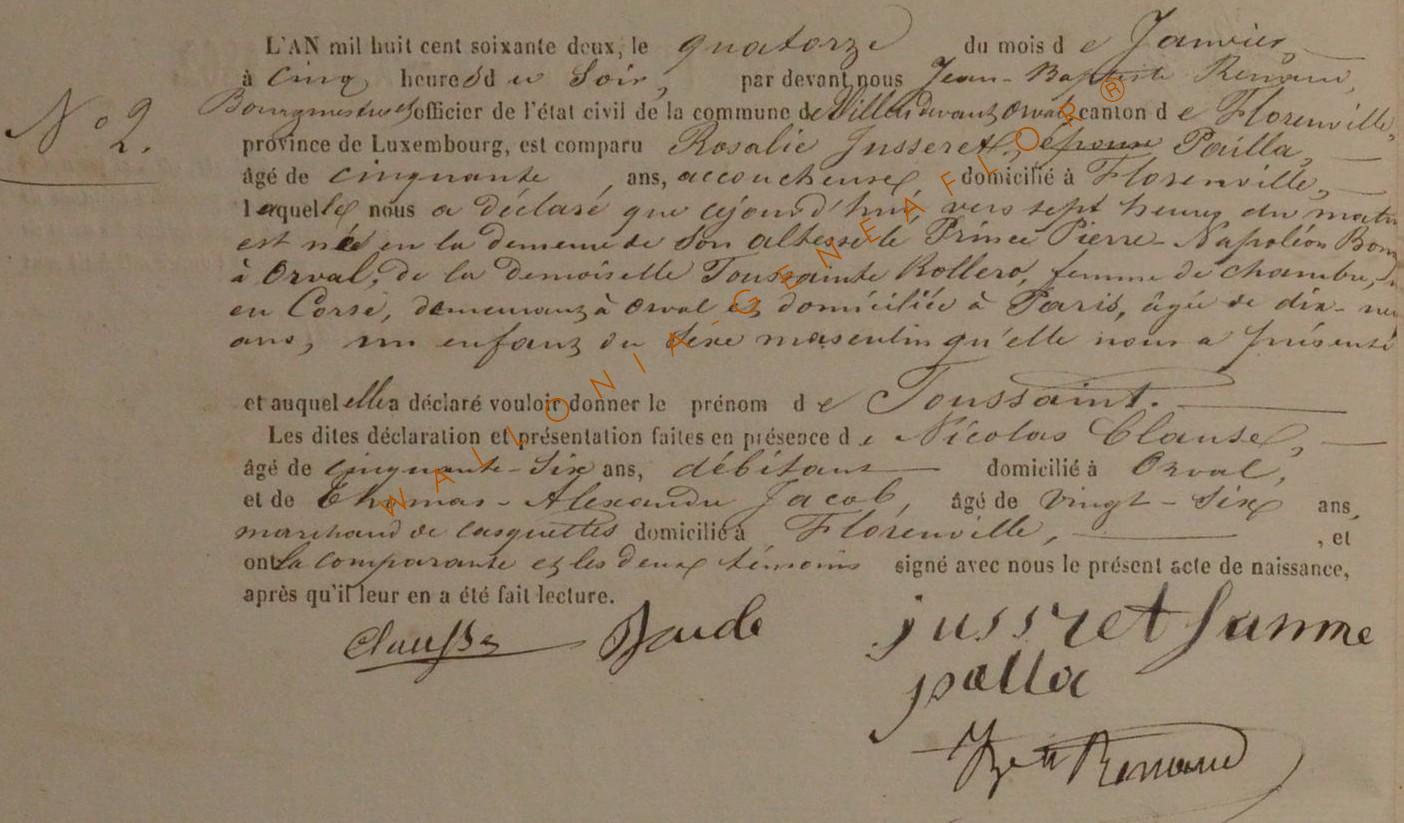 L'AN mil huit cent soixante deux, le quatorze du mois de Janvier,
à cinq heures du Soir, par devant nous Jean-Baptiste Renaud,
No 2. Bourgmestre et officier de l'état civil de la commune de Villers devant Orval canton de Florenville,
province de Luxembourg, est comparu Rosalie Jusseret, épouse Pailla,
âgé de cinquante ans, accoucheuse, domicilié à Florenville,
laquelle nous a déclaré que cejourd'hui, vers sept heures du matin
est né en la demeure de Son altesse le Prince Pierre-Napoléon Bon
à Orval, de la demoiselle Toussainte Rollero, femme de chambre,
en Corse, demeurant à Orval et domiciliée à Paris, âgée de dix-neu
ans, un enfant du Sexe masculin qu'elle nous a présenté
et auquel elle a déclaré vouloir donner le prénom de Toussaint.
Les dites déclaration et présentation faites en présence de Nicolas Clausse,
âgé de cinquante-Six ans, débitant domicilié à Orval,
et de Thomas-Alexandre Jacob, âgé de vingt-Six ans,
marchand de casquettes domicilié à Florenville, , et
ont la comparante et les deux témoins signé avec nous le présent acte de naissance,
après qu'il leur en a été fait lecture.
Clausse jussret famme
palla
Jbte Renaud
WALLONIA-GENEAFLOR®